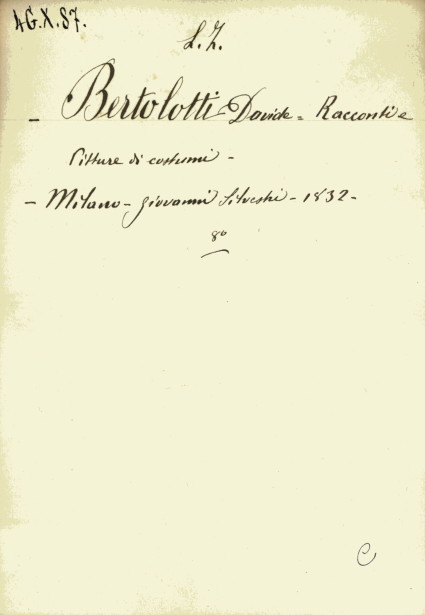 AG.X.87.
L. Z.
- Bertolotti Davide = Racconti e
Pitture di costumi -
- Milano - Giovanni Silvestri - 1832 -
8º
C